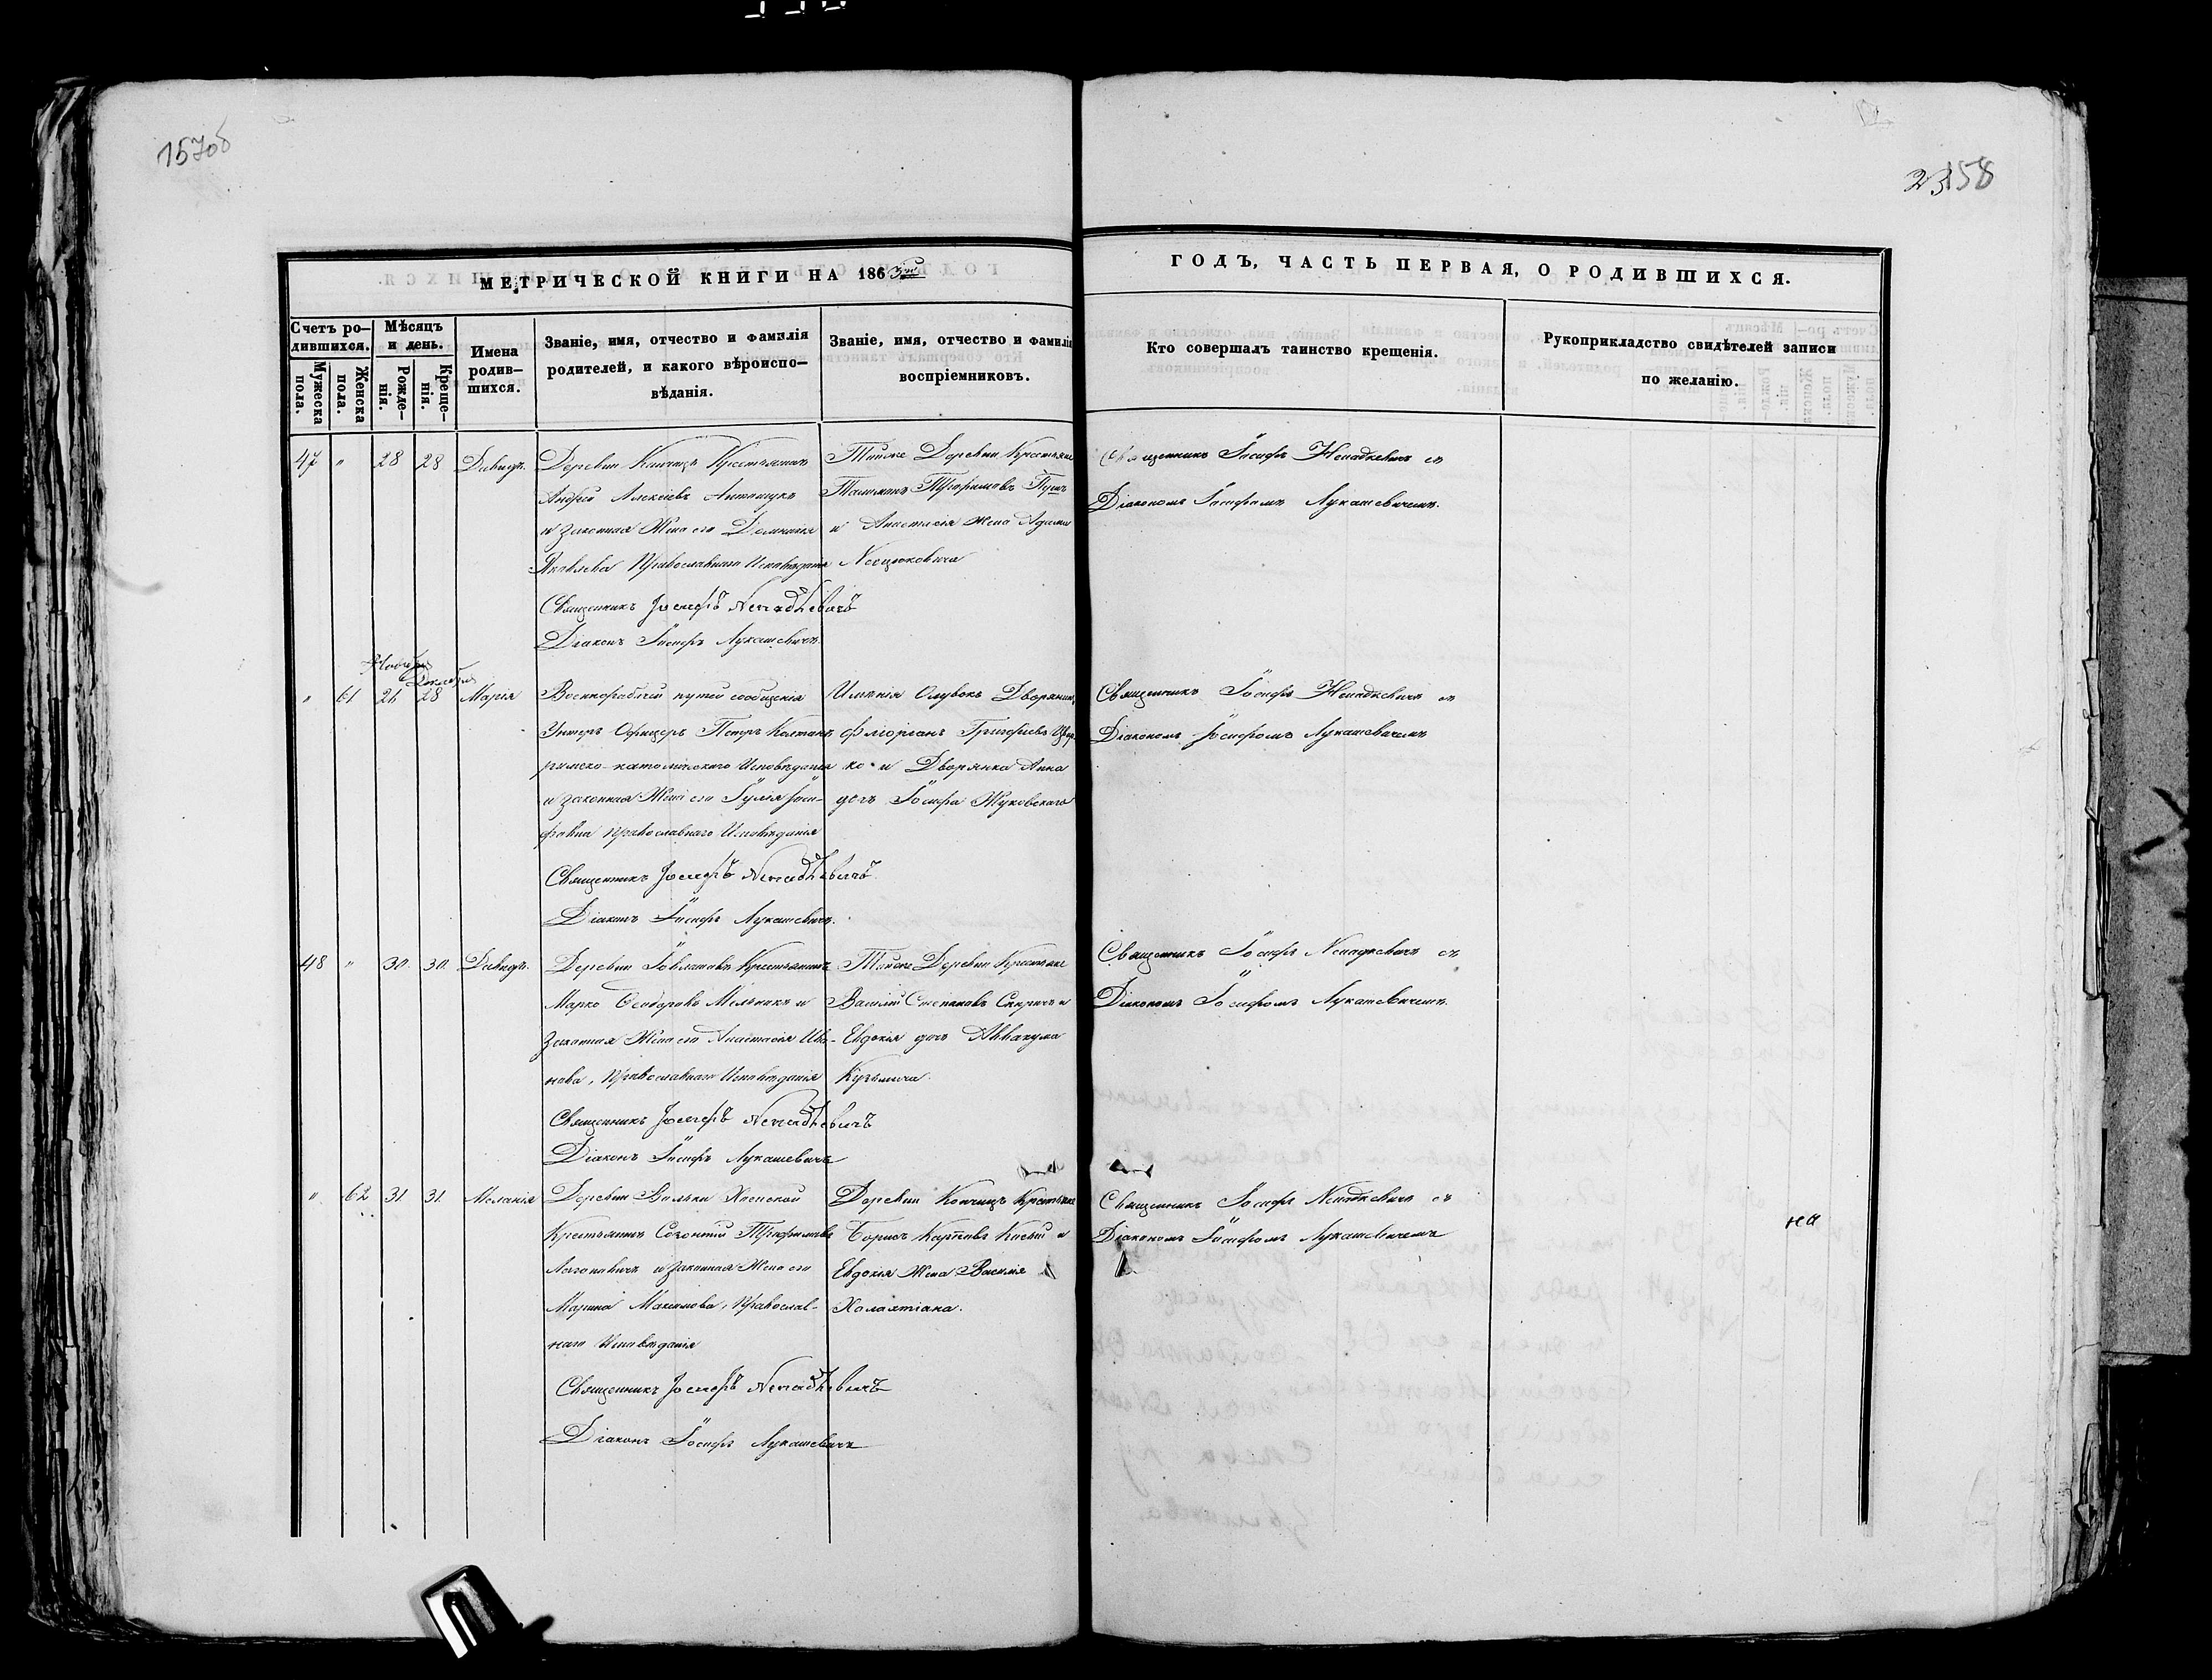 157об
23 158
МЕТРИЧЕСКОЙ КНИГИ НА 1863
ГОДЪ, ЧАСТЬ ПЕРВАЯ, О РОДИВШИХСЯ.
Счетъ ро-
дившихся.
Мужеска пола.
Женска пола.
Мѣсяцъ
и день.
Рожде-
нія.
Креще-
нія.
Имена
родив-
шихся.
Званіе, имя, отчество и фамилія
родителей, и какого вѣроиспо-
вѣданія.
Званіе, имя, отчество и фамилія
воспріемниковъ.
Кто совершалъ таинство крещенія.
Рукоприкладство свидѣтелей записи
по желанію.
47 " 28 28 Давидъ.
Деревни Копчицъ Крестьянинъ
Андрей Алексѣевъ
и законная Жена его Домникія
Яковлева Православнаго Исповѣданія
Священникъ Іосифъ Ненадкевичъ
Діаконъ Іосифъ Лукашевичъ.
Тойже Деревни Крестьяне
Трофимовъ
и Анастасія жена Адама
Священникъ Іосифъ Ненадкевичъ съ
Діакономъ Іосифомъ Лукашевичемъ.
Ноября
Декабря
" 61 26 28 Марія
Военнорабочій путей сообщенія
Унтеръ Офицеръ Петръ
римско-католическаго Исповѣданія
и законная Жена его Іулія Іоси-
фовна Православнаго Исповѣданія
Священникъ Іосифъ Ненадкевичъ.
Діаконъ Іосифъ Лукашевичъ.
Имѣнія Дворянинъ
Флоріанъ Григорьевъ
ко и Дворянка Анна
дочь Іосифа Жуковскаго
Священникъ Іосифъ Ненадкевичъ съ
Діакономъ Іосифомъ Лукашевичемъ
48 " 30. 30. Давидъ.
Деревни Крестьянинъ
Марко Ѳеодоровъ Мельникъ и
Законная Жена его Анастасія Ива-
нова, Православнаго Исповѣданія
Священникъ Іосифъ Ненадкевичъ
Діаконъ Іосифъ Лукашевичъ
Тойже Деревни Крестьяне
Василій Степановъ и
Евдокія дочь Аввакума
Кузьмича.
Священникъ Іосифъ Ненадкевичъ съ
Діакономъ Іосифомъ Лукашевичемъ.
" 62 31 31 Меланія
Деревни
Крестьянинъ Созонтій Трофимовъ
и законная Жена его
Марина Максимова, Православ-
наго Исповѣданія
Священникъ Іосифъ Ненадкевичъ
Діаконъ Іосифъ Лукашевичъ
Деревни Копчицъ Крестьяне
Борисъ Карповъ и
Евдокія Жена Василія
Священникъ Іосифъ Ненадкевичъ съ
Діакономъ Іосифомъ Лукашевичемъ
на